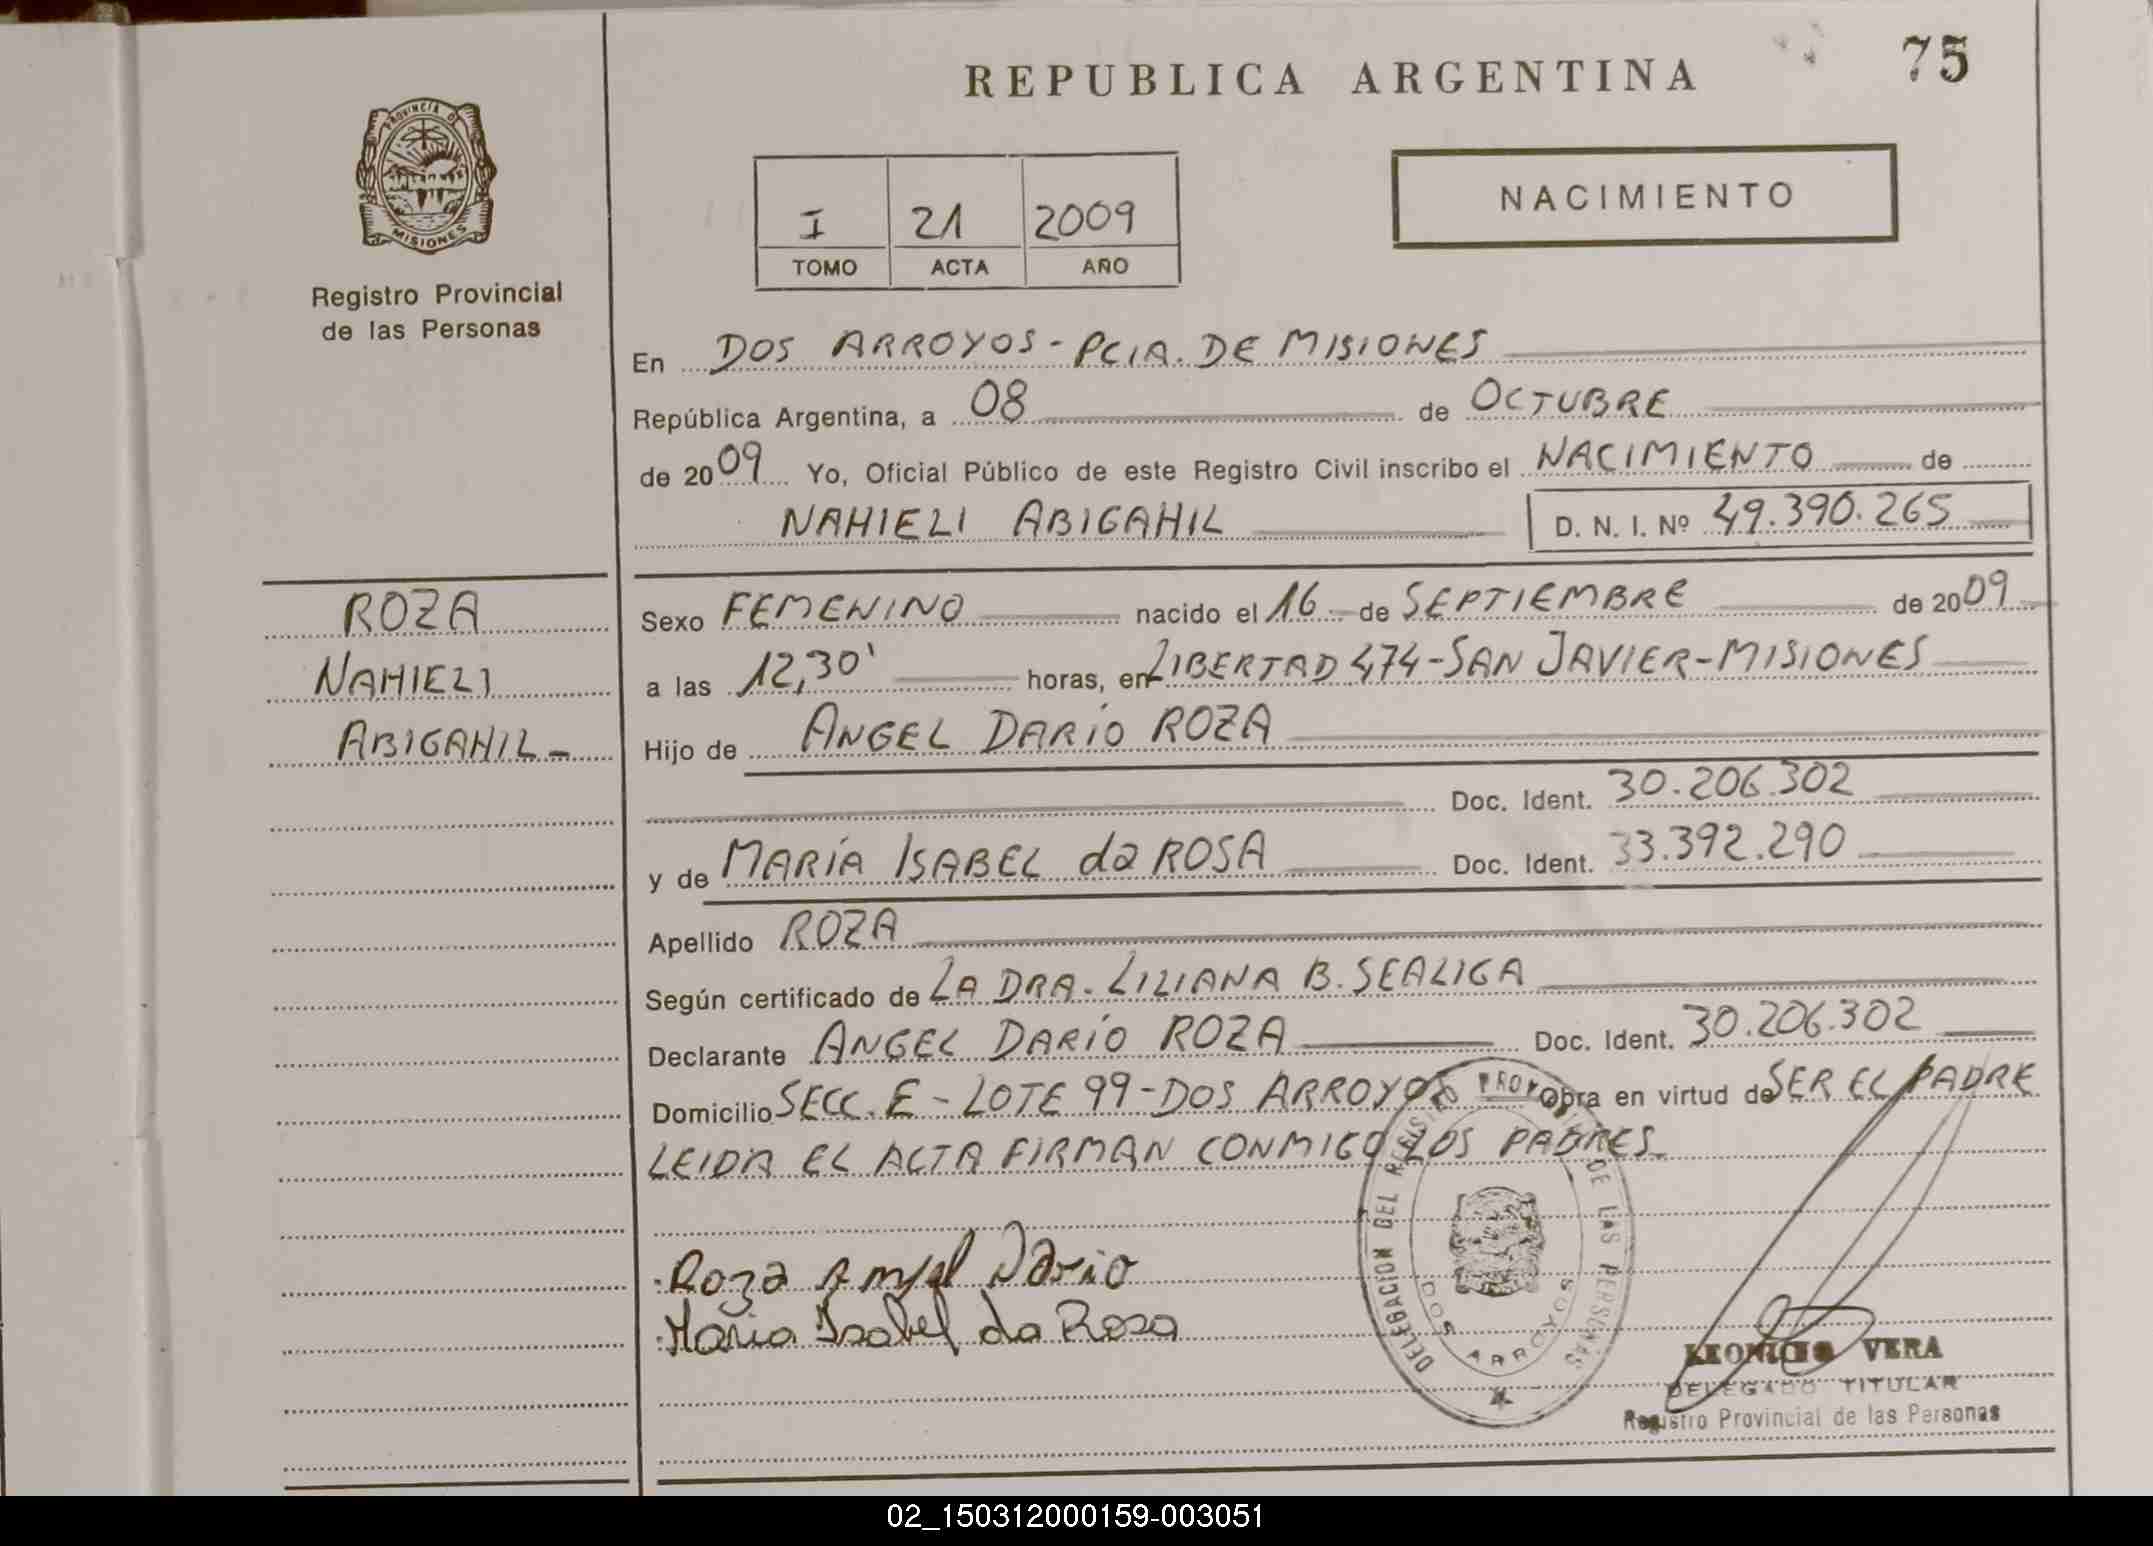 REPUBLICA ARGENTINA
75
PROVINCIA DE
MISIONES
Registro Provincial
de las Personas
I 21 2009
TOMO ACTA AÑO
NACIMIENTO
En DOS ARROYOS - PCIA. DE MISIONES
República Argentina, a 08 de OCTUBRE
de 2009 Yo, Oficial Público de este Registro Civil inscribo el NACIMIENTO de
NAHIELI ABIGAHIL D. N. I. Nº 49.390.265
ROZA
NAHIELI
ABIGAHIL -
Sexo FEMENINO nacido el 16 de SEPTIEMBRE de 2009
a las 12,30' horas, en LIBERTAD 474 - SAN JAVIER - MISIONES
Hijo de ANGEL DARÍO ROZA
Doc. Ident. 30.206.302
y de MARÍA ISABEL da ROSA Doc. Ident. 33.392.290
Apellido ROZA
Según certificado de LA DRA. LILIANA B. SEALIGA
Declarante ANGEL DARÍO ROZA Doc. Ident. 30.206.302
Domicilio SECC. E - LOTE 99 - DOS ARROYOS Obra en virtud de SER EL PADRE
LEIDA EL ACTA FIRMAN CONMIGO LOS PADRES.
Roza Angel Dario
Maria Isabel da Rosa
DELEGACION DEL REGISTRO PROV DE LAS PERSONAS
DOS ARROYOS
VERA
DELEGADO TITULAR
Registro Provincial de las Personas
02_150312000159-003051